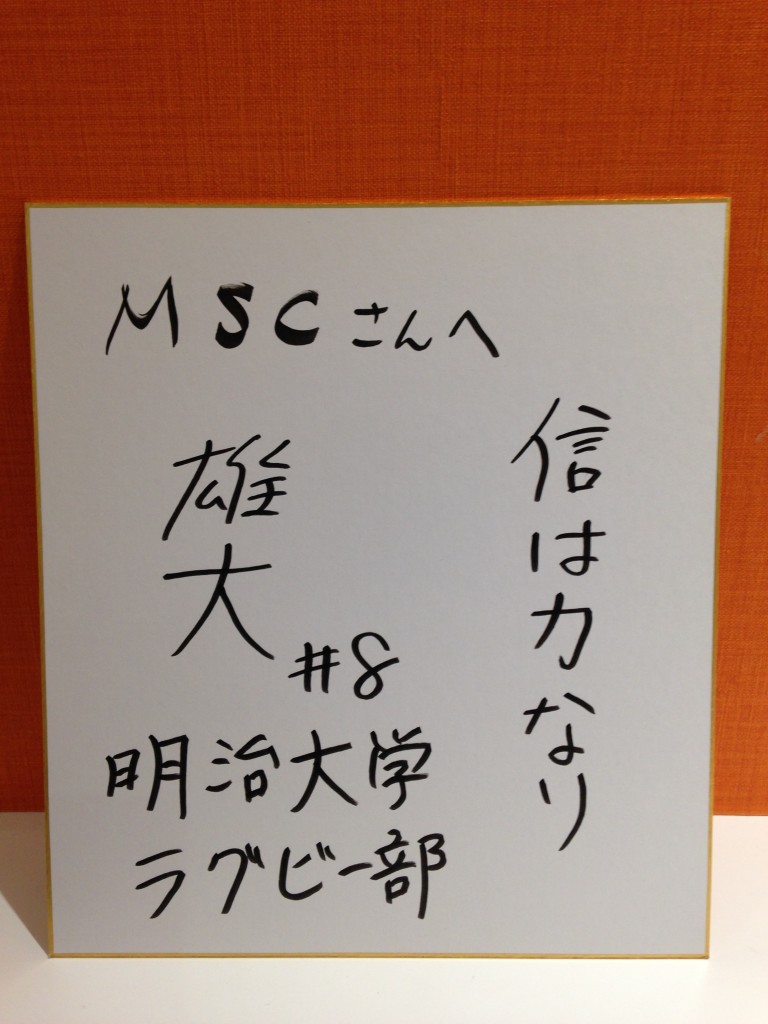 MSCさんへ
信は力なり
雄大
#8
明治大学
ラグビー部